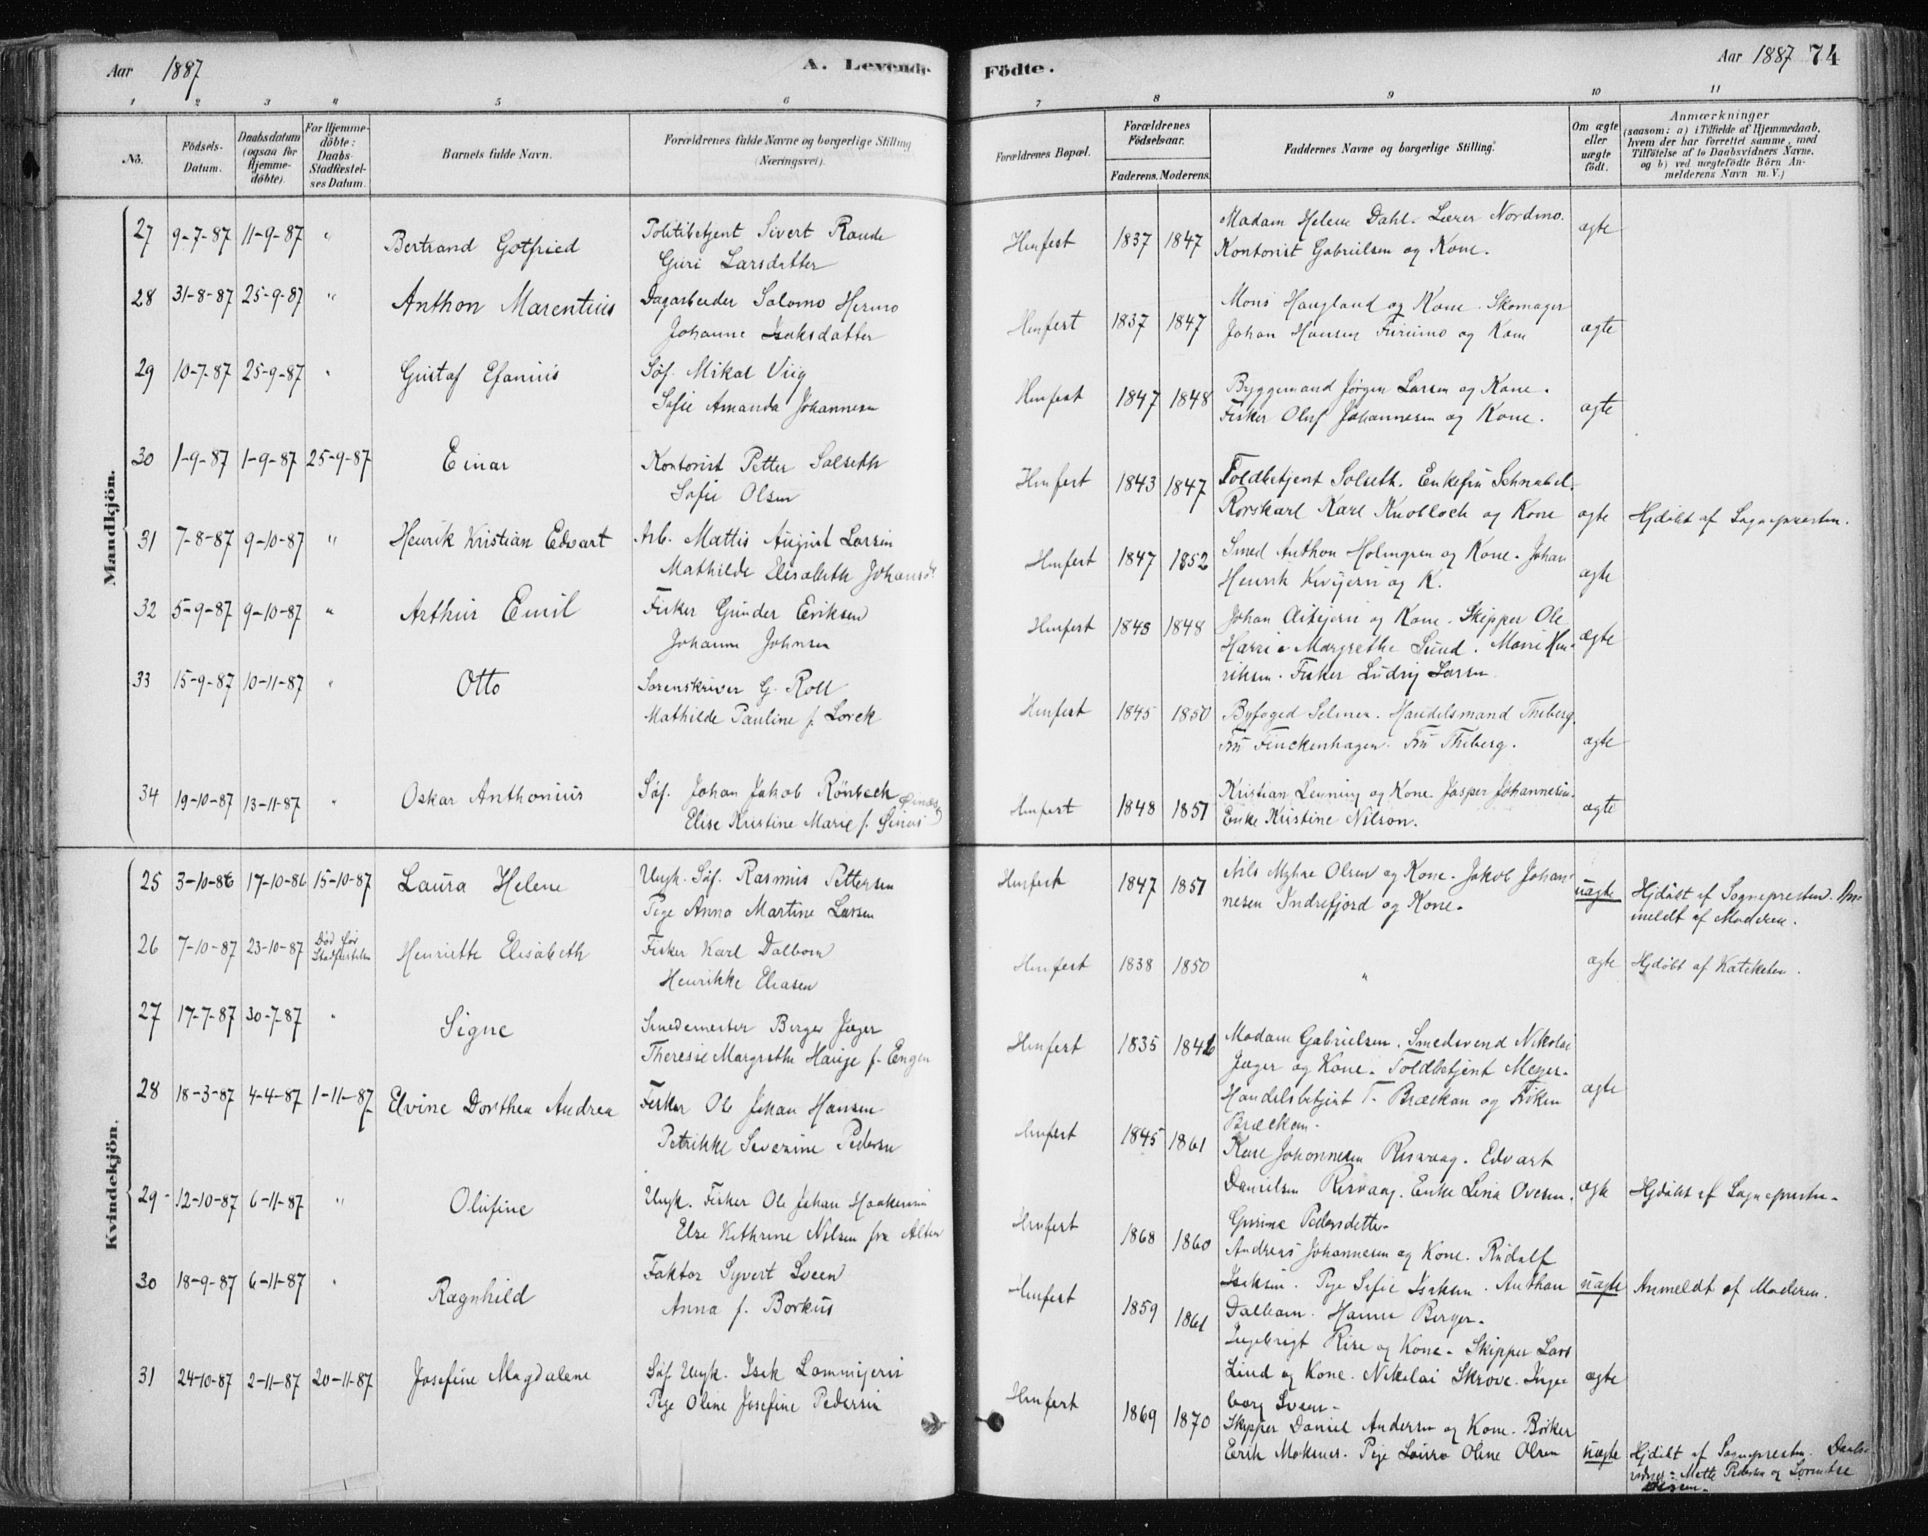 Aar 1887
A. Levende Födte.
Aar 1887 74
1 2 3 4 5 6 7 8 9 10 11
No.
Födsels-Datum.
Daabsdatum (ogsaa for Hjemme-döbte).
For Hjemme-döbte: Daabs-Stadfæstelses Datum.
Barnets fulde Navn.
Forældrenes fulde Navne og borgerlige Stilling (Næringsvei).
Forældrenes Bopæl.
Forældrenes Födselsaar.
Faderens. Moderens.
Faddernes Navne og borgerlige Stilling.
Om ægte eller uægte födt.
Anmærkninger
(saasom: a) i Tilfælde af Hjemmedaab,
hvem der har forrettet samme, med
Tilföielse af to Daabsvidners Navne,
og b) ved uægtefödte Börn An-
melderens Navn m. V.)
Mandkjön.
27 9-7-87 11-9-87 " Bertrand Gotfried Politibetjent Sivert Rande Hmfest 1837 1847 Madam Helene Dahl. Lærer Nordmo. ægte
Guri Larsdatter Kontorist Gabrielsen og Kone.
28 31-8-87 25-9-87 " Anthon Marentius Dagarbeider Salomo Hermo Hmfest 1837 1847 Mons Haugland og Kone. Skomager ægte
Johanne Isaksdatter Johan Hansen Furumo og Kone
29 10-7-87 25-9-87 " Gustaf Efanius Söf. Mikal Viig Hmfest 1847 1848 Byggemand Jørgen Larsen og Kone. ægte
Sofie Amanda Johannesen Fisker Oluf Johannesen og Kone.
30 1-9-87 1-9-87 25-9-87 Einar Kontorist Petter Solseth Hmfest 1843 1847 Toldbetjent Solseth. Enkefru Schnabel. ægte Hjdöbt af Sognepresten.
Sofie Olsen Rorskarl Karl Knobloch og Kone
31 7-8-87 9-10-87 " Henrik Kristian Edvart Arb. Mattis August Larsen Hmfest 1847 1852 Smed Anthon Holmgren og Kone. Johan ægte
Mathilde Elisabeth Johansdr Henrik og K.
32 5-9-87 9-10-87 " Arthur Emil Fisker Gunder Eriksen Hmfest 1845 1848 Johan og Kone. Skipper Ole ægte
Johanna Johnsen Margrethe Sund. Marie Hen-
riksen. Fisker Ludvig Larsen
33 15-9-87 10-11-87 " Otto Sorenskriver G. Roll Hmfest 1845 1850 Byfoged Selmer. Handelsmand Theberg. ægte
Mathilde Pauline f. Lorck Fru Finckenhagen. Fru Theberg.
34 19-10-87 13-11-87 " Oskar Anthonius Söf. Johan Jakob Rönbeck Hmfest 1848 1851 Kristian Lenning og Kone. Jasper Johannesen. ægte
Elise Kristine Marie f. Enke Kristine Nilson.
Kvindekjön.
25 3-10-86 17-10-86 15-10-87 Laura Helene Ungk. Söf. Rasmus Pettersen Hmfest 1847 1851 Nils Myhre Olsen og Kone. Jakob Johan- uægte Hjdöbt af Sognepresten. An-
Pige Anna Martine Larsen nesen Indrefjord og Kone. meldt af Moderen.
26 7-10-87 23-10-87 Död för Stadfæstelsen Henriette Elisabeth Fisker Karl Dalbom Hmfest 1838 1850 " ægte Hjdöbt af Kateketen.
Henrikke Eliasen
27 17-7-87 30-7-87 " Signe Smedemester Berger Jæger Hmfest 1835 1846 Madam Gabrielsen. Smedsvend Nikolai ægte
Theresie Margrethe Hauge f. Engen Jæger og Kone. Toldbetjent Meyer.
Handelsbetjent T. Bræckan og Fröken
Bræckan.
28 18-3-87 4-4-87 1-11-87 Elvine Dorthea Andrea Fisker Ole Johan Hansen Hmfest 1845 1861 Karl Johannesen Risvaag. Edvart
Petrikke Severine Pedersen Danielsen Risvaag. Enke Lina Ovesen. ægte Hjdöbt af Sognepresten.
Gurine Pedersdatter
29 12-10-87 6-11-87 " Olufine Ungk. Fisker Ole Johan Haakensen Hmfest 1868 1860 Andreas Johannesen og Kone. Rudolf
Else Kathrine Nilsen fra Alten Isaksen. Pige Sofie Isaksen. Anthon uægte Anmeldt af Moderen.
Dalbom. Hanna Berger.
30 18-9-87 6-11-87 " Ragnhild Faktor Syvert Sveen Hmfest 1859 1861 Ingebrigt Rise og Kone. Skipper Lars
Anna f. Borkus Lind og Kone. Nikolai Skrove. Inge- ægte
borg Sveen.
31 24-10-87 2-11-87 20-11-87 Josefine Magdalene Söf. Ungk. Isak Hmfest 1869 1870 Skipper Daniel Andersen og Kone.
Pige Oline Josefine Pedersen Erik Moksnes. Pige Laura Oline Olsen uægte Hjdöbt af Sognepresten. Daabs-
vidner: Mette Pedersen og